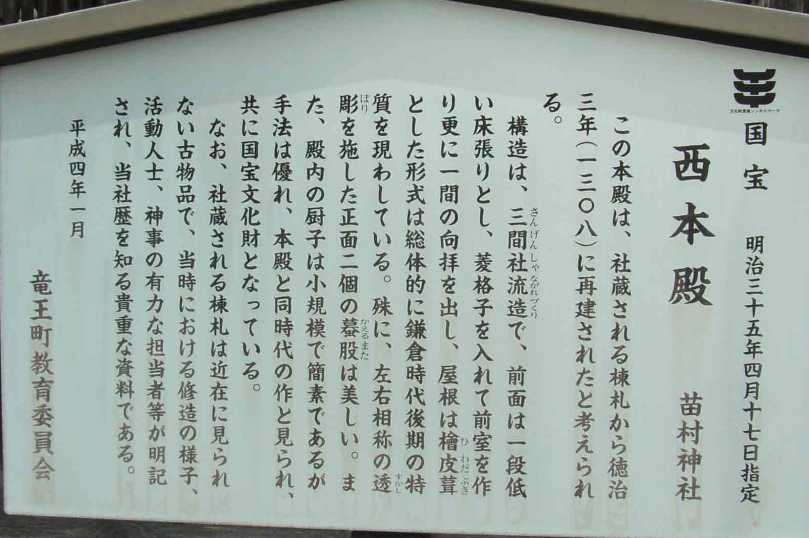 国宝 明治三十五年四月十七日指定
西本殿 苗村神社
この本殿は、社蔵される棟札から徳治
三年(一三〇八)に再建されたと考えられ
る。
構造は、三間社流造で、前面は一段低
い床張りとし、菱格子を入れて前室を作
り更に一間の向拝を出し、屋根は檜皮葺
とした形式は総体的に鎌倉時代後期の特
質を現わしている。殊に、左右相称の透
彫を施した正面二個の蟇股は美しい。ま
た、殿内の厨子は小規模で簡素であるが
手法は優れ、本殿と同時代の作と見られ、
共に国宝文化財となっている。
なお、社蔵される棟札は近在に見られ
ない古物品で、当時における修造の様子、
活動人士、神事の有力な担当者等が明記
され、当社歴を知る貴重な資料である。
平成四年一月
竜王町教育委員会